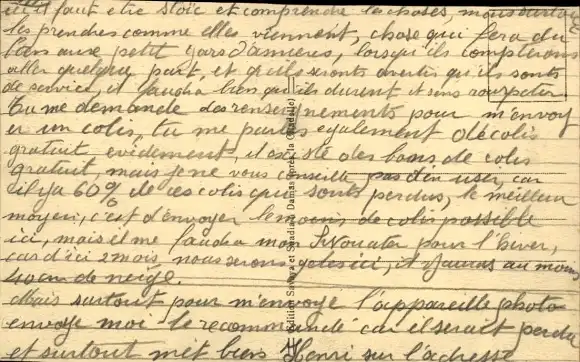 il faut etre stoïc et comprendre les choses, mais surtout
les prendres comme elles viennent, chose qui fera du
bien aux petit gars d'asnieres, lorsqu'ils compterons
aller quelque part, et qu'ils seront avertis qu'ils sont
de service, il faudra bien qu'ils durent et sans rouspeter
Tu me demande des renseignements pour m'envoy
er un colis, tu me parles egalement de colis
gratuit evidement, il existe des bons de colis
gratuit, mais je ne vous conseille pas d'en user, car
il y a 60% de ces colis qui sont perdus, le meilleur
moyen, c'est d'envoyer le moins de colis possible
ici, mais il me faudra mon pour l'hiver,
car d'ici 2 mois, nous serons geles ici, il y aura au moins
40cm de neige.
Mais surtout pour m'envoye l'appareille photo
envoye moi le recommandé car il serait perdu
et surtout met bien Henri sur l'adresse
Damas après la